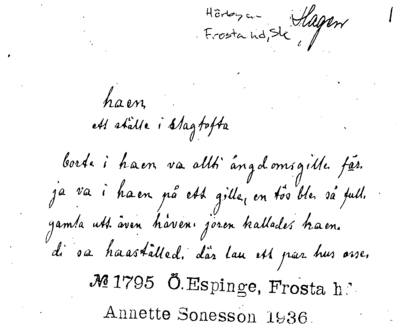 Hörby sn
Frosta hd, Sk
Hagen
1
haen
ett ställe i Slagtofta
borte i haen va allti ångdomsgille förr.
ja va i haen på ett gille, en tös ble så full.
gamla utt även jören kallades haen.
di sa haastället, där lau ett par hus
№ 1795 Ö. Espinge, Frosta h.
Annette Sonesson 1936